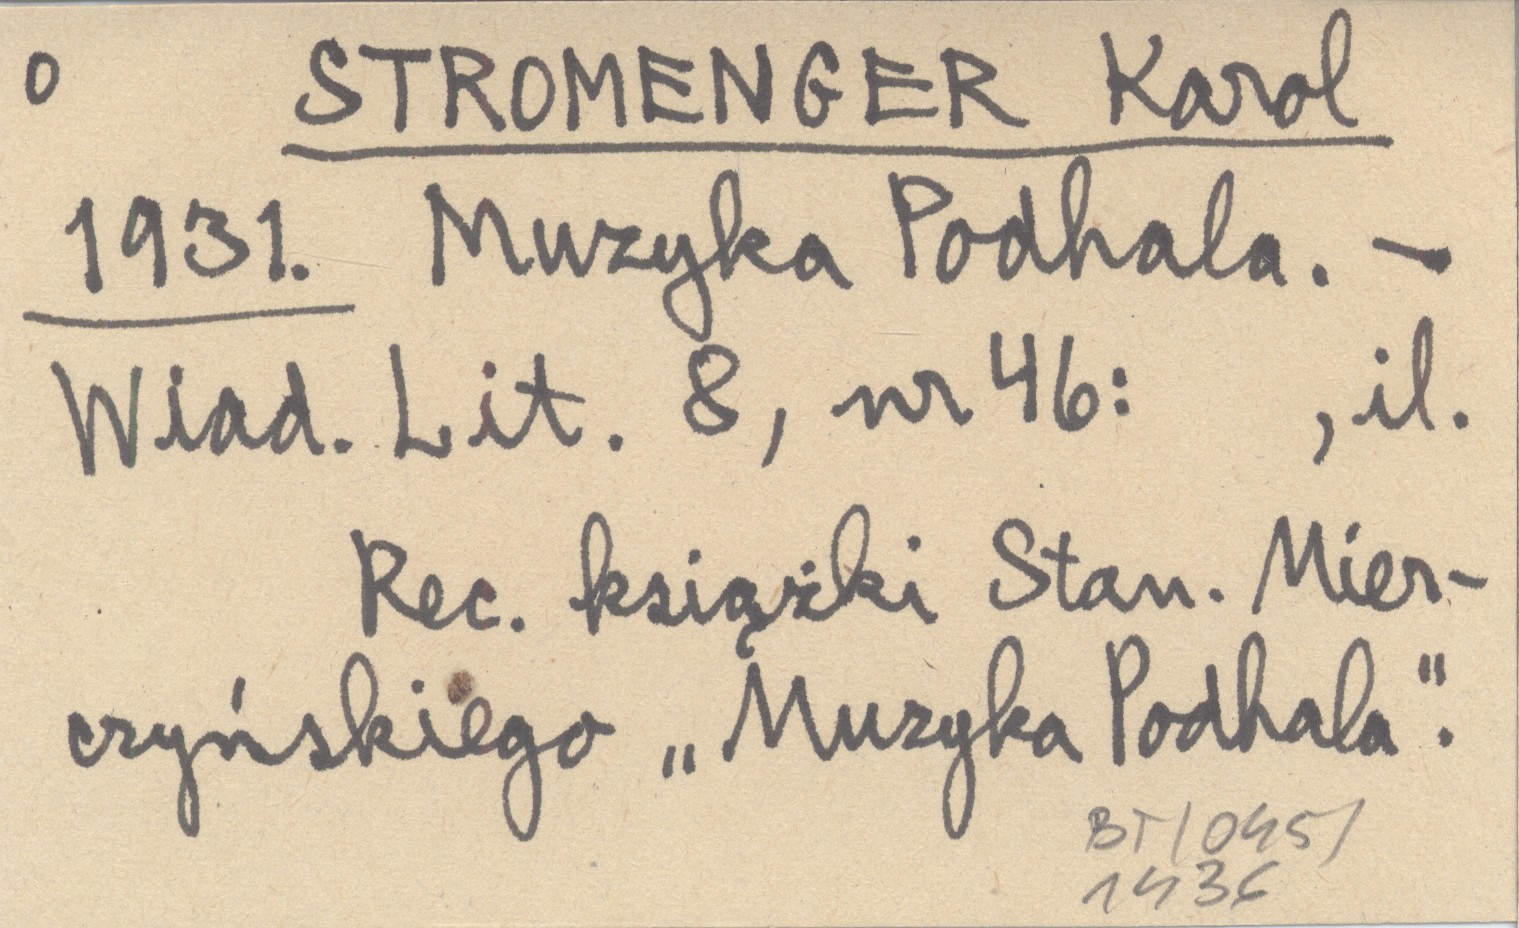 0 STROMENGER Karol
1931. Muzyka Podhala. -
Wiad. Lit. 8, nr 46: , il.
Rec. książki Stan. Mier-
czyńskiego „Muzyka Podhala".
BT/045/
1436